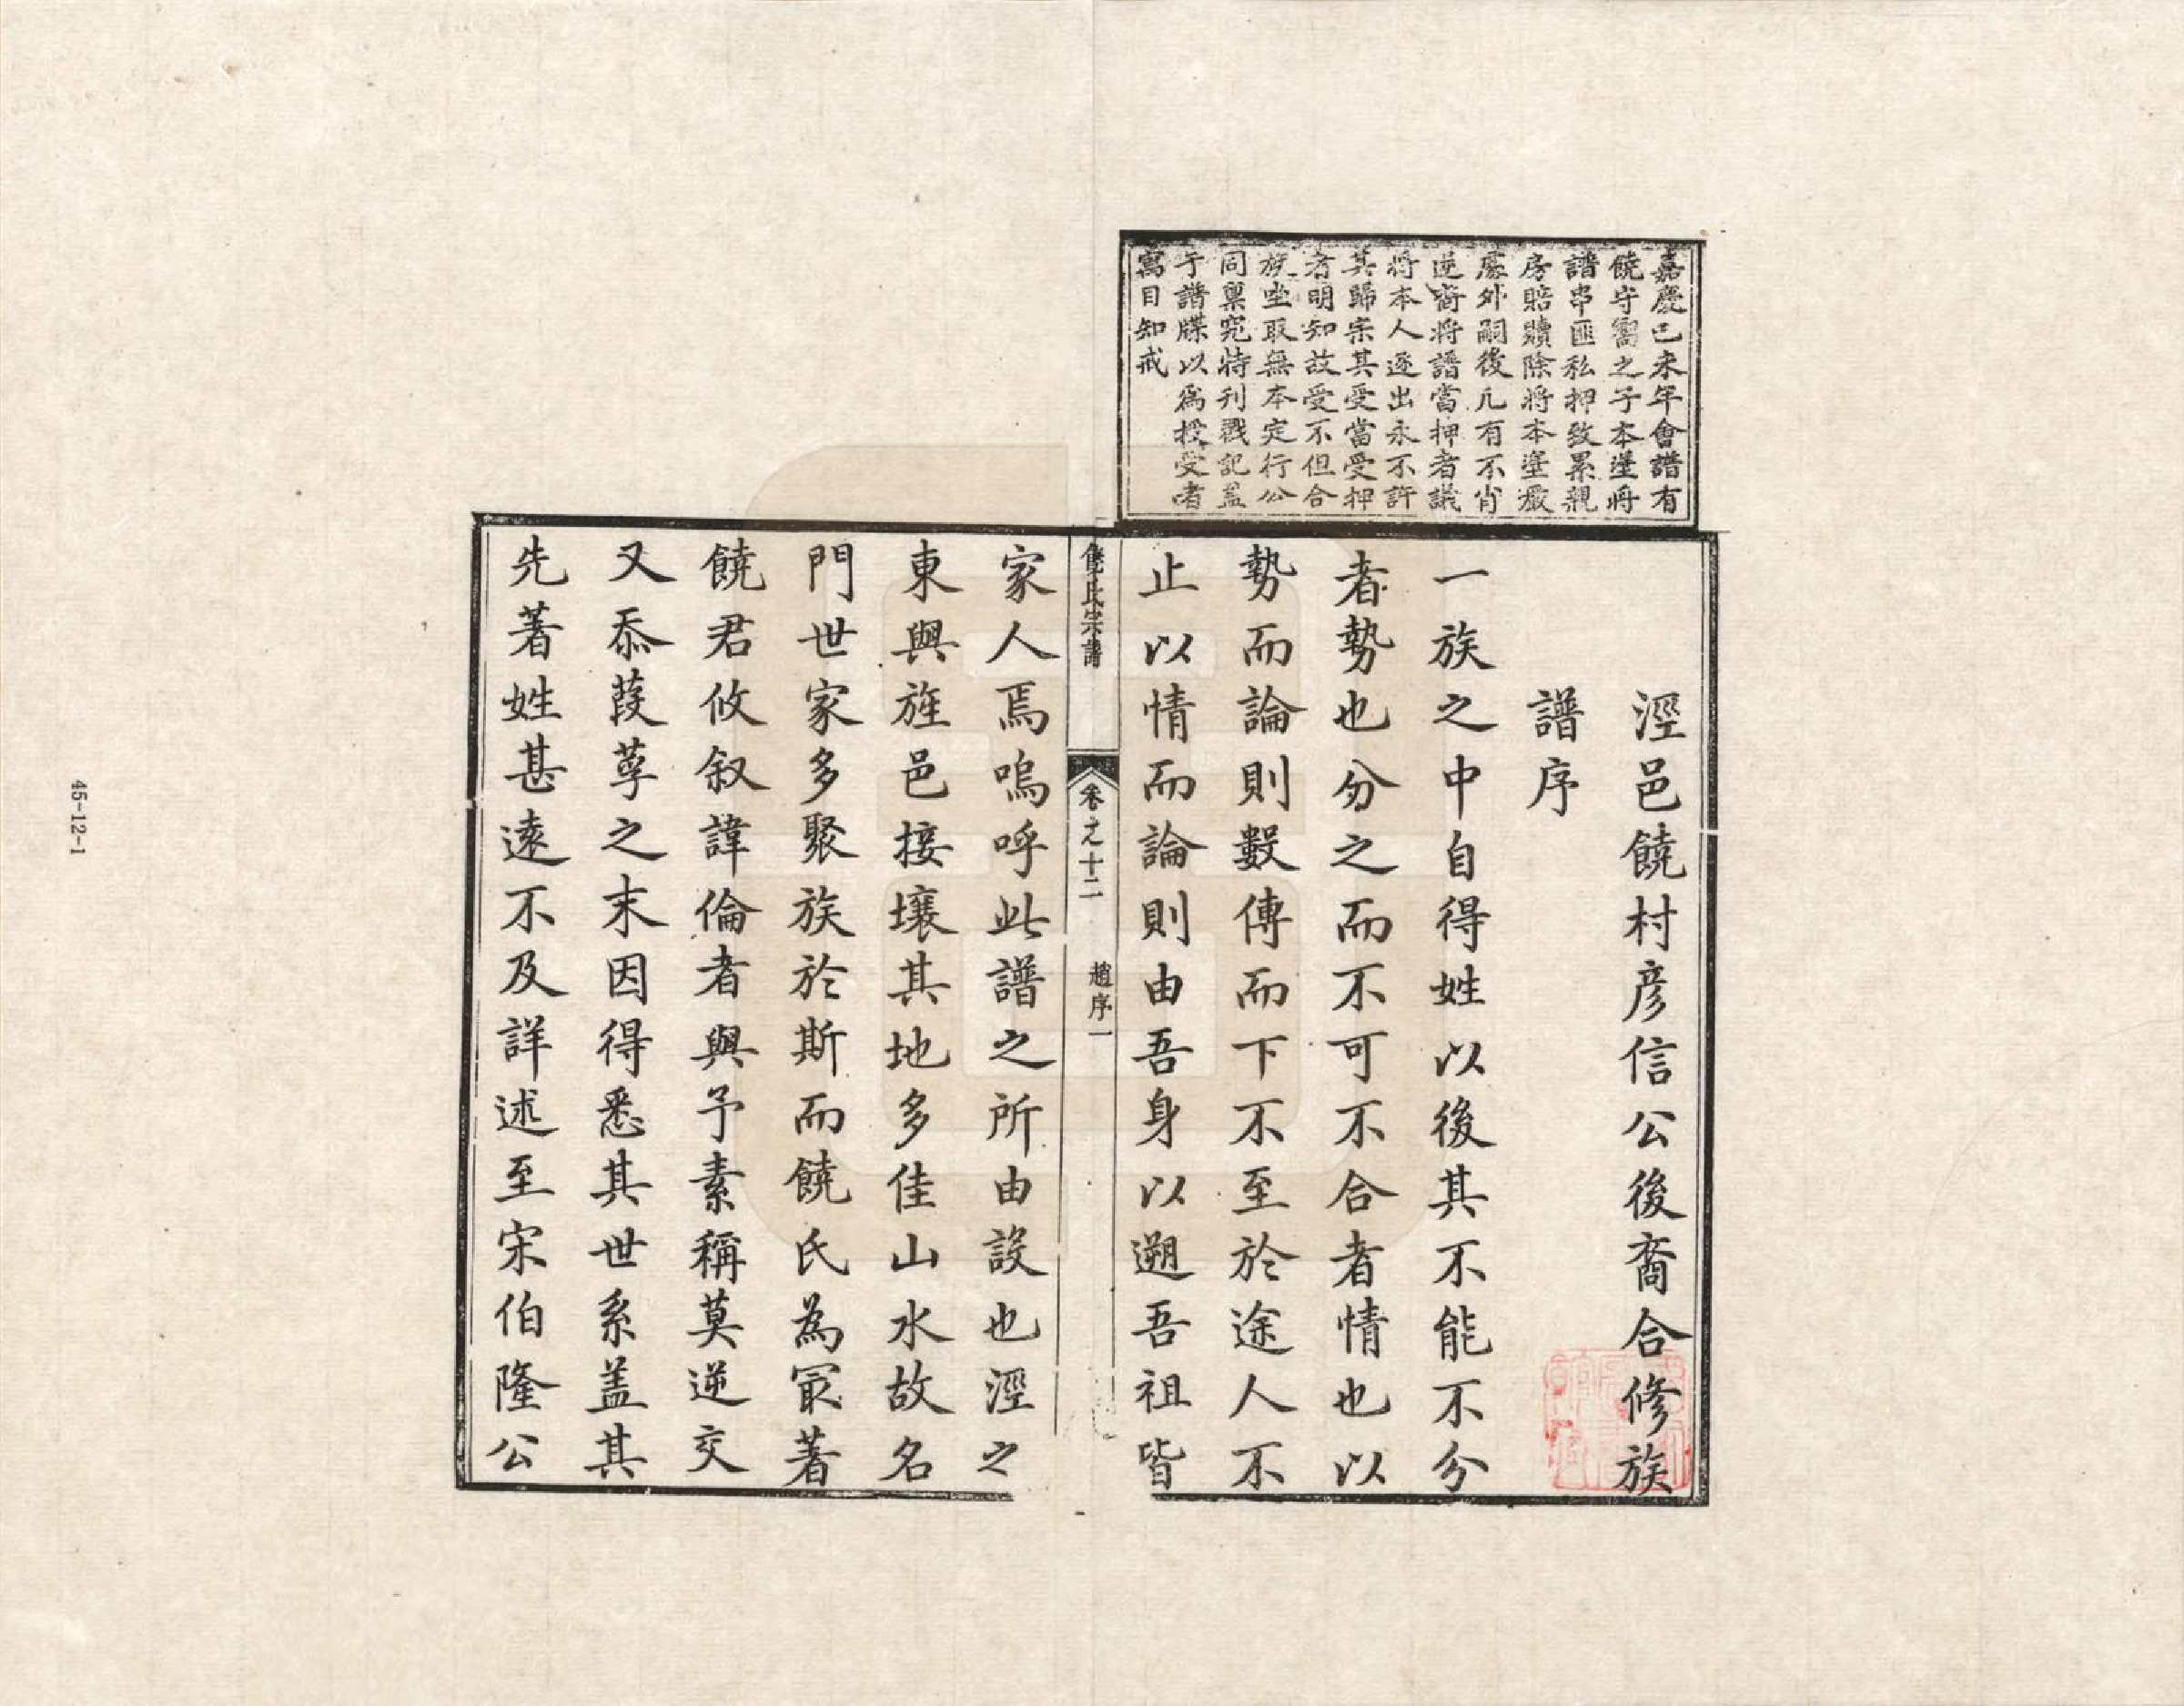 嘉慶已未年會譜有
饒守謌之子本塗將
譜串匪私押致累親
房賠贖除將本塗嚴
處外嗣後凢有不肖
逆裔將譜當押者議
將本人逐出永不許
其歸宗其受當受押
者明知故受不但合
族坐取無本定行公
同稟究特刊戳記盖
于譜牒以爲授受者
寓目知戒
涇邑饒村彦信公後裔合修族
譜序
一族之中自得姓以後其不能不分
者勢也分之而不可不合者情也以
勢而論則數傳而下不至於途人不
止以情而論則由吾身以遡吾祖皆
饒氏宗譜
卷之十二
趙序一
家人焉嗚呼此譜之所由設也涇之
東與旌邑接壤其地多佳山水故名
門世家多聚族於斯而饒氏為冣著
饒君攸叙諱倫者與予素稱莫逆交
又忝葭莩之末因得悉其世系盖其
先著姓甚遠不及詳述至宋伯隆公
45-12-1